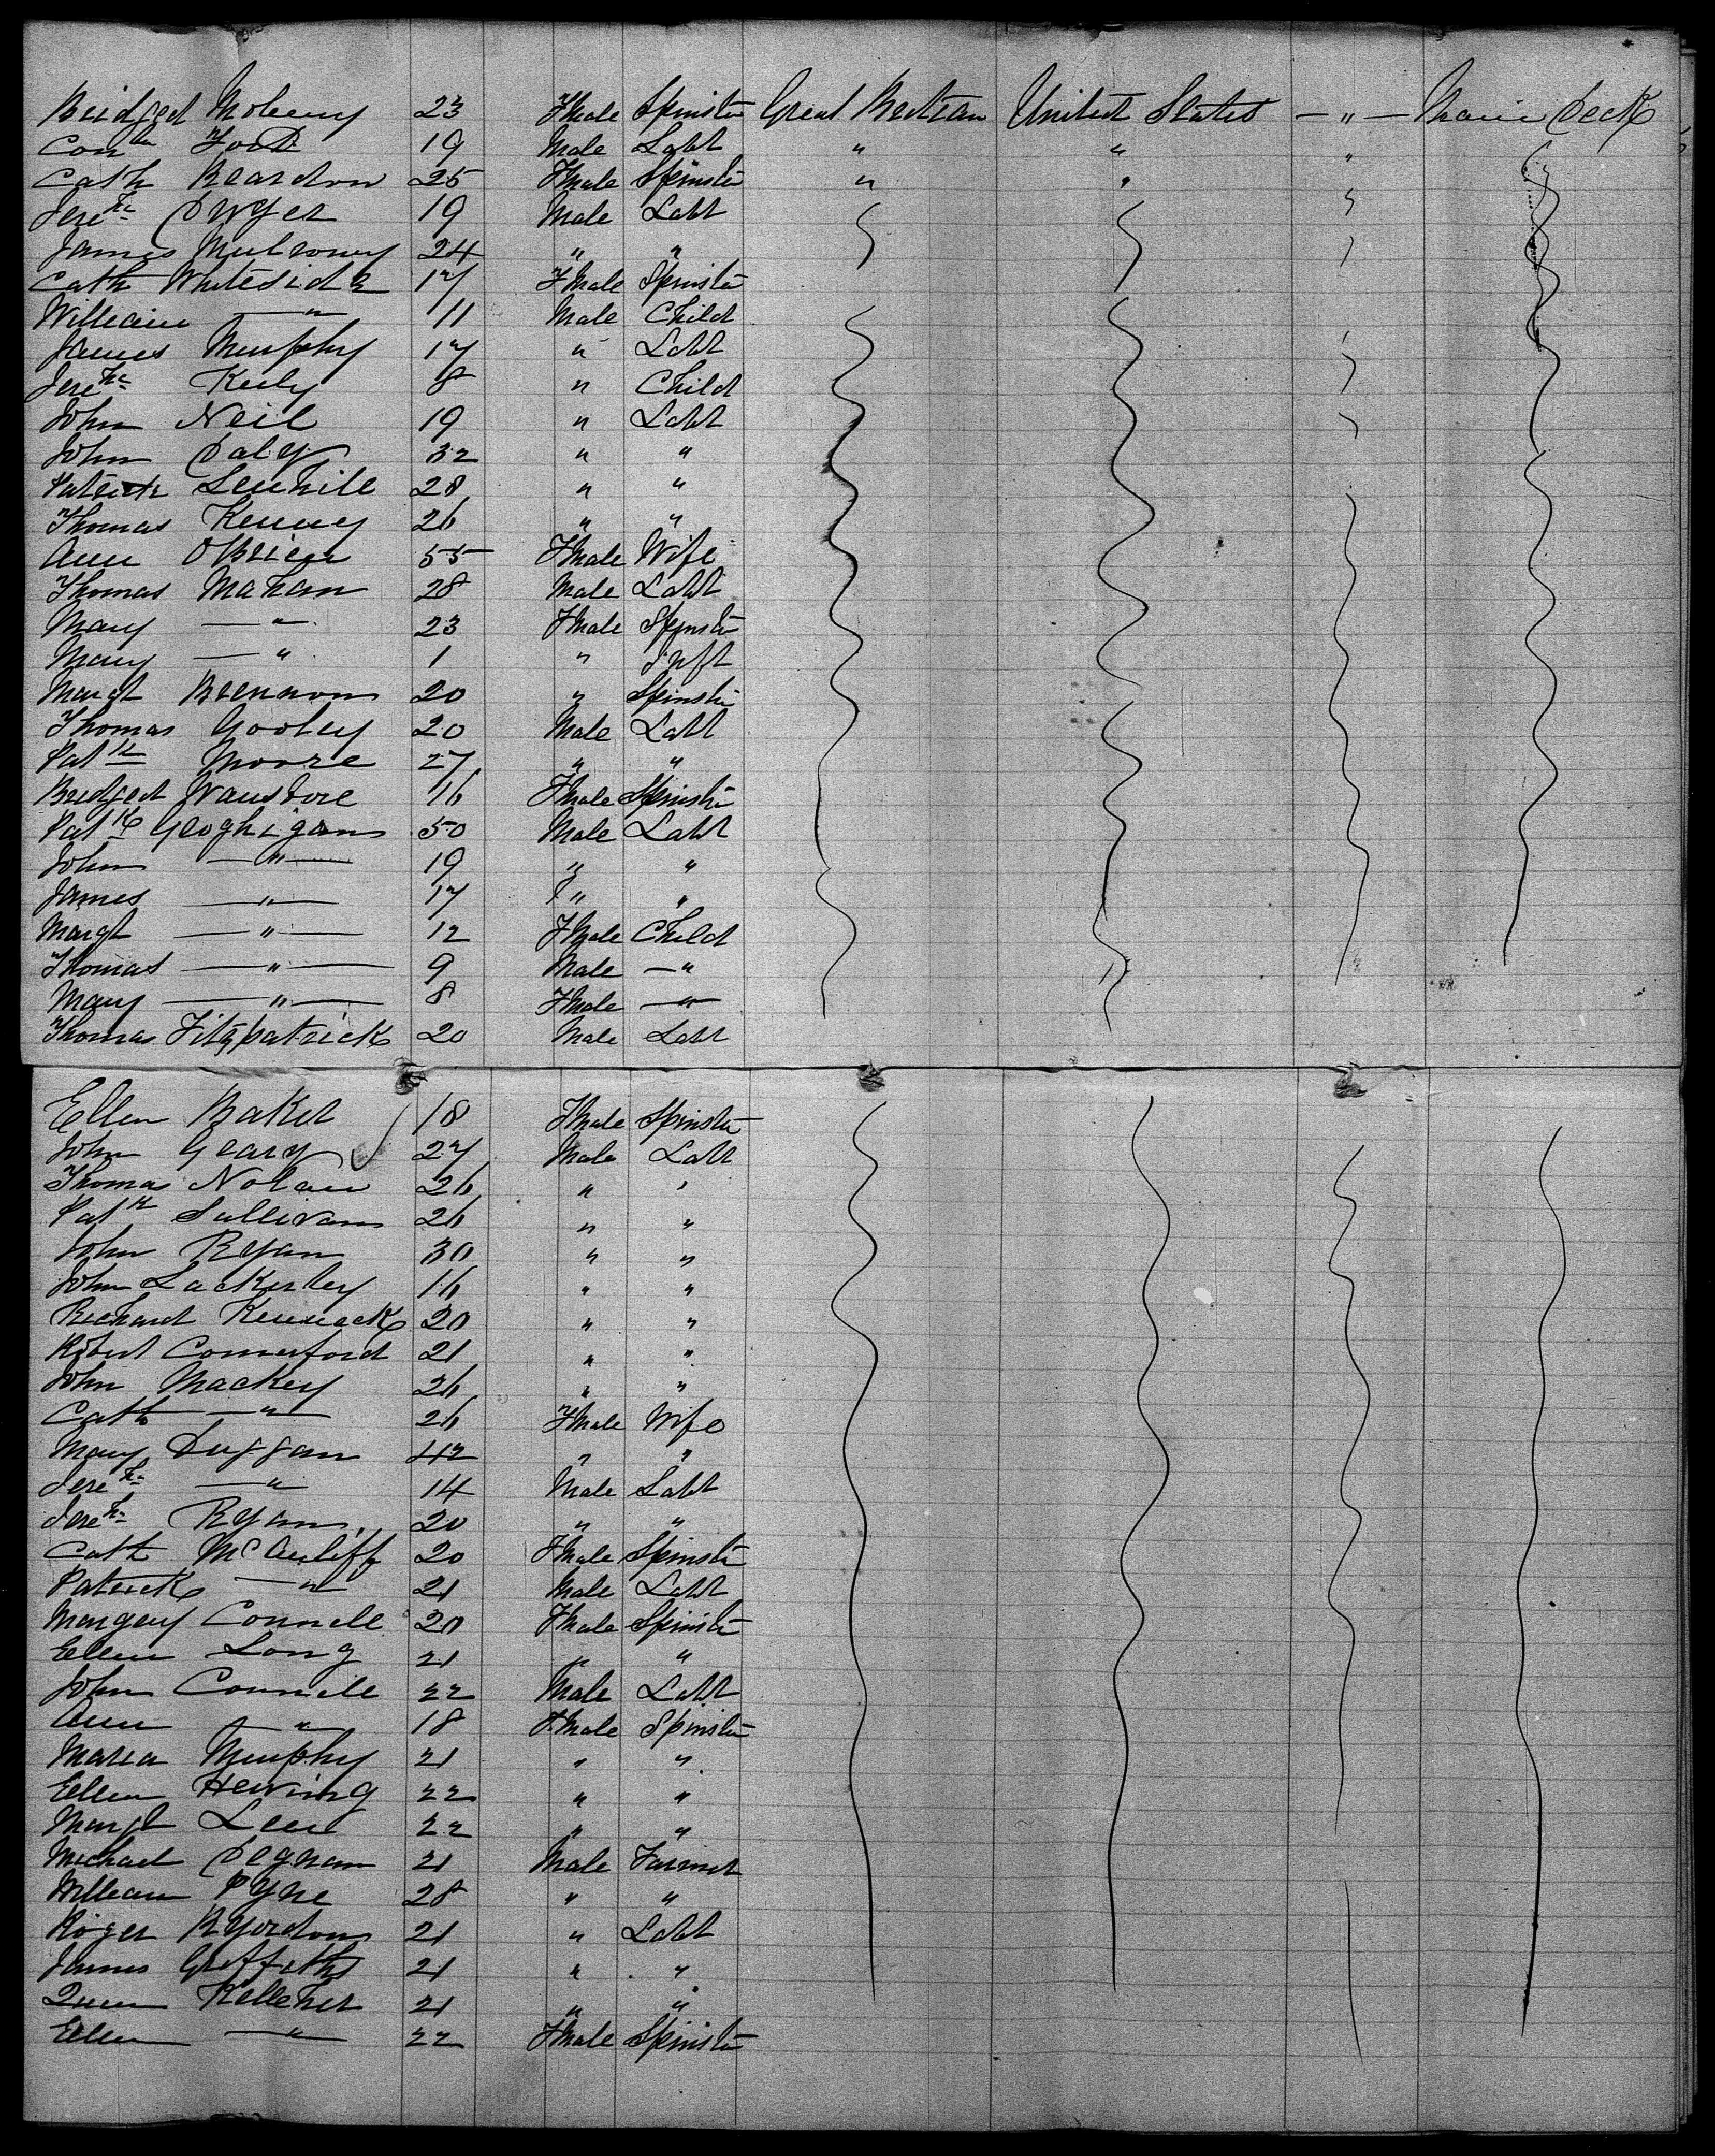 Bridget Moloney 23 Fmale Spinster Great Brittan United States — " — Main Deck
Con Ford 19 Male Labr " " "
Cath Reardon 25 Fmale Spinster " " "
Jereh Dwyer 19 Male Labr
James Mulroney 24 " "
Cath Whiteside 17 Fmale Spinster
William — " 11 Male Child
James Murphy 17 " Labr
Jereh Kiely 8 " Child
John Neil 19 " Labr
John Daly 32 " "
Patrick 28 " "
Thomas Kenney 26 " "
Ann OBrien 55 Fmale Wife
Thomas Mahan 28 Male Labr
Mary — " 23 Fmale Spinster
Mary — " 1 " Inft
Margt Brennan 20 " Spinster
Thomas Gooley 20 Male Labr
Patk Moore 27 " "
Bridget 16 Fmale Spinster
Patk Geoghigan 50 Male Labr
John — " — 19 " "
James — " — 17 " "
Margt — " — 12 Fmale Child
Thomas — " — 9 Male — "
Mary — " — 8 Fmale — " —
Thomas Fitzpatrick 20 Male Labr
Ellen Baker 18 Fmale Spinster
John Geary 27 Male Labr
Thomas Nolan 26 " "
Patk Sullivan 26 " "
John Ryan 30 " "
John 16 " "
Richard 20 " "
Robert Comerford 21 " "
John Mackey 26 " "
Cath — " — 26 Fmale Wife
Mary Duggan 42 " "
Jereh — " 14 Male Labr
Jereh Ryan 20 " "
Cath McAuliff 20 Fmale Spinster
Patrick — " 21 Male Labr
Margery Connell 20 Fmale Spinster
Ellen Long 21 " "
John Connell 22 Male Labr
Ann — " 18 Fmale Spinster
Maria Murphy 21 " "
Ellen 22 " "
Margt 22 " "
Michael Degnam 21 Male Farmer
William Pyne 28 " "
Roger 21 " Labr
James Griffiths 21 " "
Kelleher 21 " "
Ellen — " — 22 Fmale Spinster